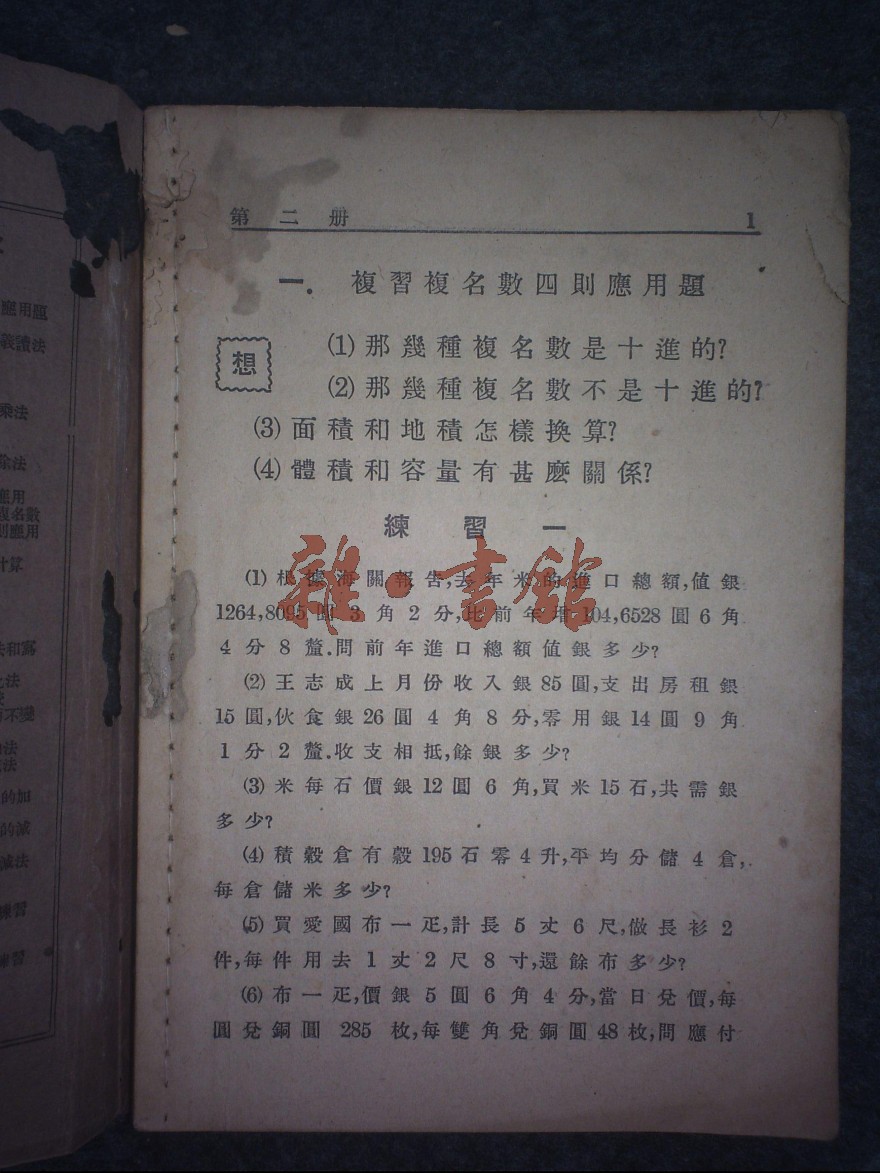 第二册 1
一. 複習複名數四則應用題
想
(1) 那幾種複名數是十進的?
(2) 那幾種複名數不是十進的?
(3) 面積和地積怎樣換算?
(4) 體積和容量有甚麽關係?
練習一
雜·書館
(1) 根據海關報告,去年米的進口總額,值銀
1264,8095圓3角2分,比前年增104,6528圓6角
4分8釐.問前年進口總額值銀多少?
(2) 王志成上月份收入銀85圓,支出房租銀
15圓,伙食銀26圓4角8分,零用銀14圓9角
1分2釐.收支相抵,餘銀多少?
(3) 米每石價銀12圓6角,買米15石,共需銀
多少?
(4) 積穀倉有穀195石零4升,平均分儲4倉,
每倉儲米多少?
(5) 買愛國布一疋,計長5丈6尺,做長衫2
件,每件用去1丈2尺8寸,還餘布多少?
(6) 布一疋,價銀5圓6角4分,當日兌價,每
圓兌銅圓285枚,每雙角兌銅圓48枚,問應付
應用題
義讀法
乘法
除法
應用
複名數
則應用
計算
法和寫
之法
而不變
的加
的減
減法
練習
練習